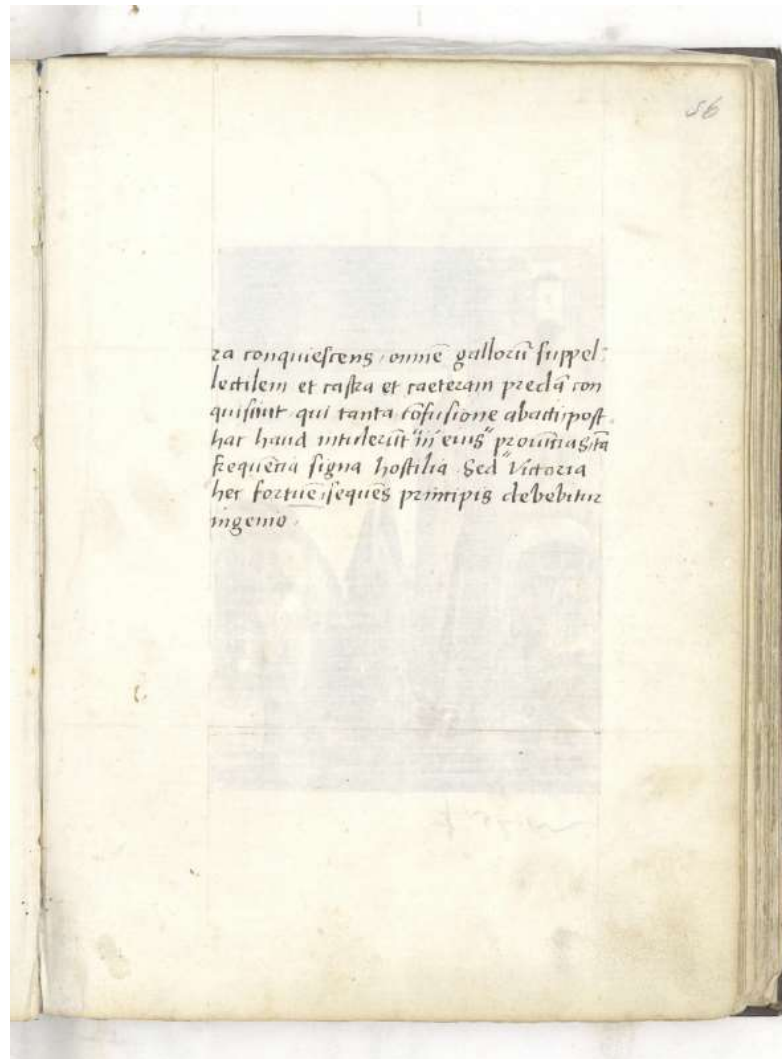 56
ra conquiescens, omnē gallorū suppel:
lectilem et castra et caeteram predā con
quisiuit qui tanta cōfusione abacti, post
hac haud intulerūt "in" eius" prouincias, tā
frequētia signa hostilia. Sed Victoria
hec fortunē, sequēs principis debebitur
ingenio,